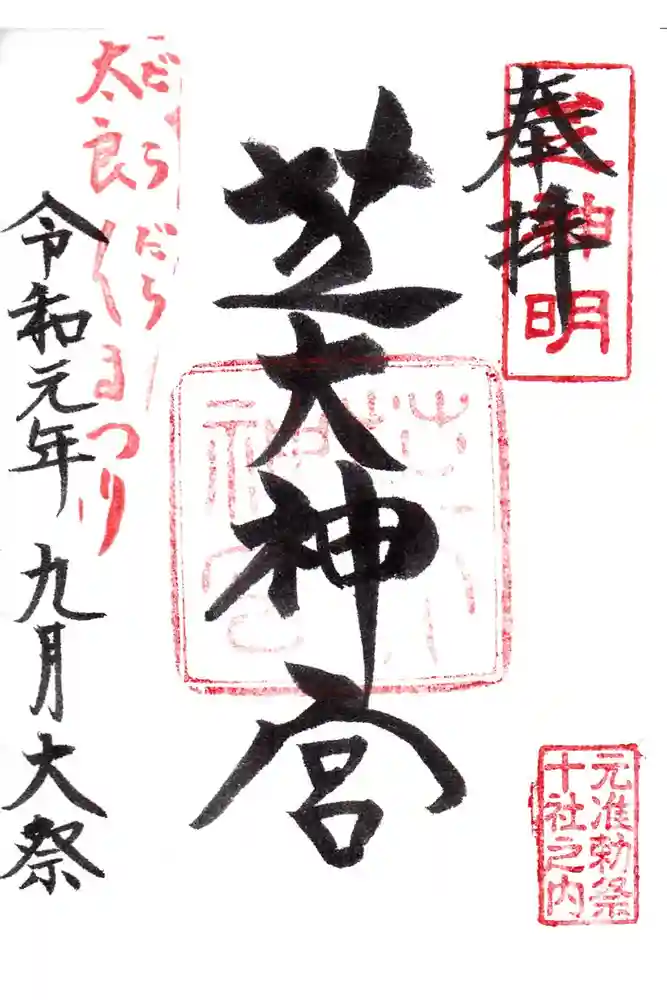 奉拝
神明
芝大神宮
芝大
神宮
元准勅祭
十社之内
だらだら
太良〱まつり
令和元年 九月大祭